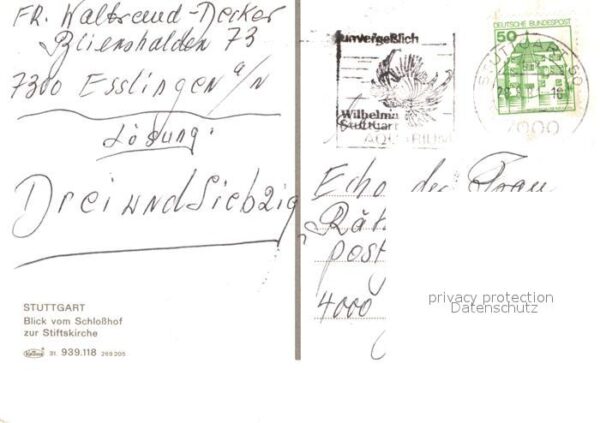 FR. Waltraud-Decker
Blienshalden 73
7300 Esslingen a/N
Lösung:
DreiundSiebzig
STUTTGART
Blick vom Schloßhof
zur Stiftskirche
31. 939.118 269 205
unvergeßlich
Wilhelma
Stuttgart
AQUARIUM
DEUTSCHE BUNDESPOST
50
STUTTGART
7000
Echo der Frau
Rät
post
4000
privacy protection
Datenschutz